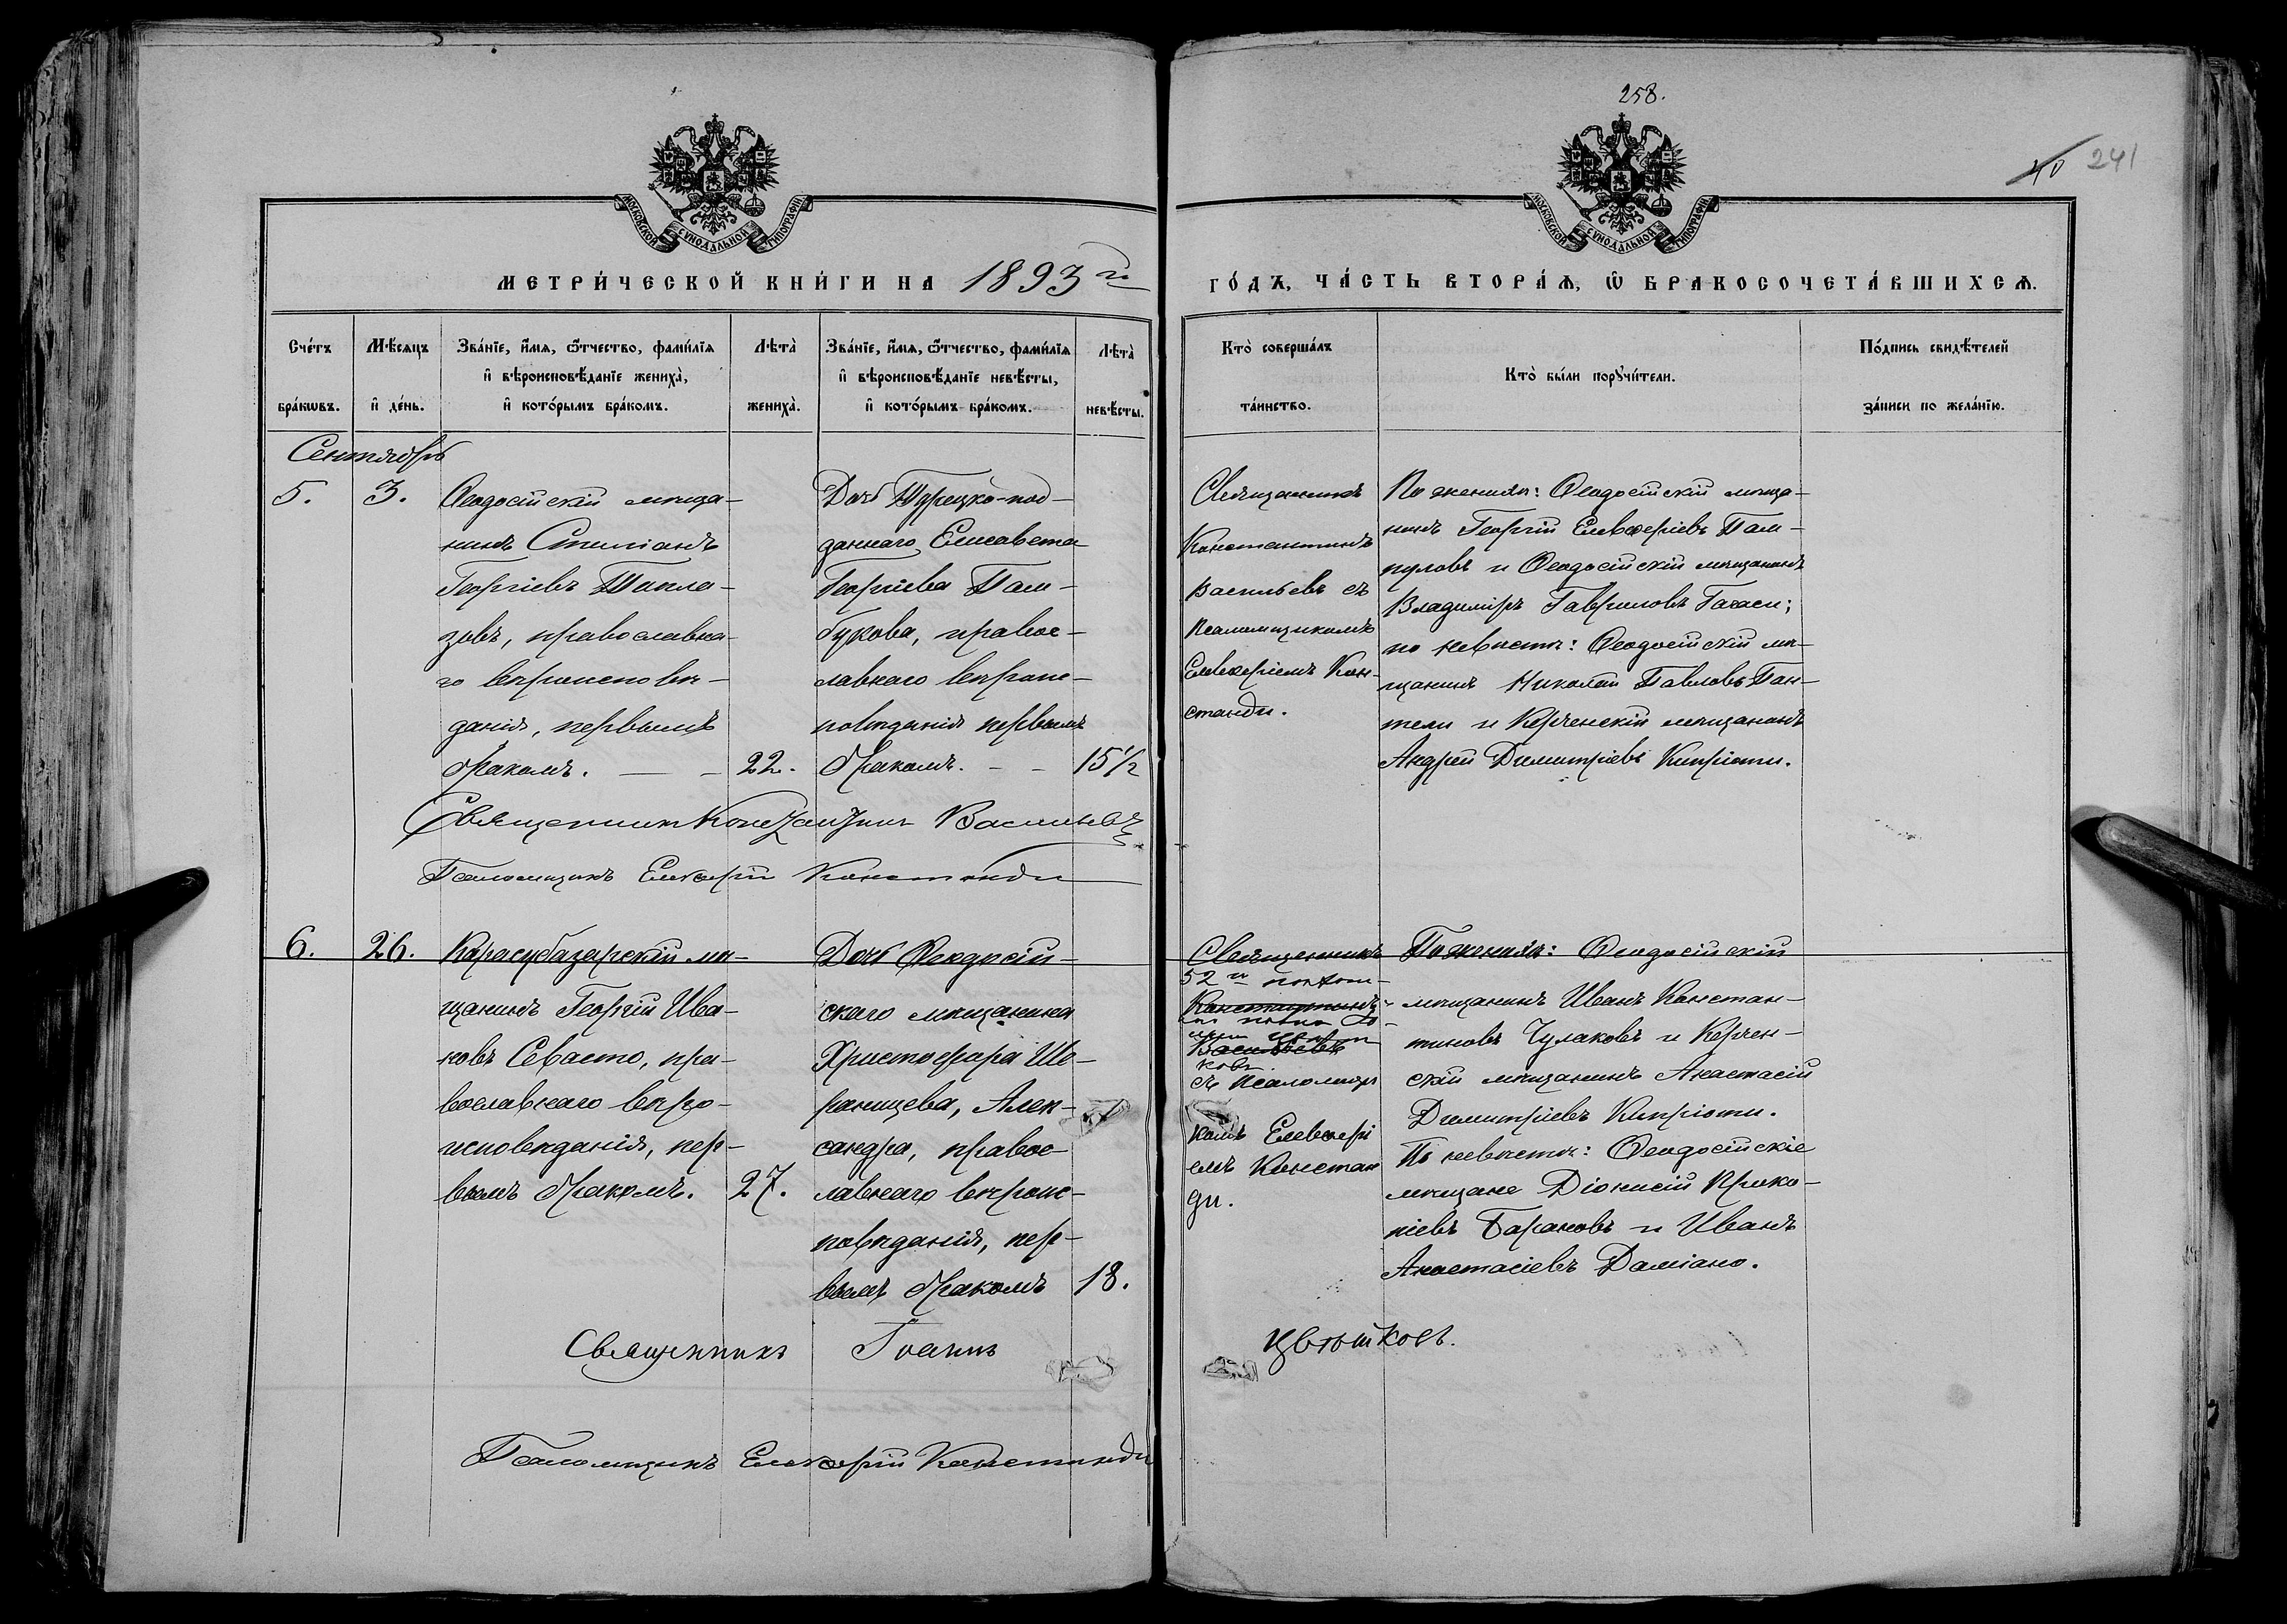 258.
40 241
МОСКОВСКОЙ СѴНОДАЛЬНОЙ ТИПОГРАФІИ
МОСКОВСКОЙ СѴНОДАЛЬНОЙ ТИПОГРАФІИ
МЕТРИ́ЧЕСКОЙ КНИ́ГИ НА 1893 й
ГО́ДЪ, ЧА́СТЬ ВТОРА́Ѧ, Ѿ БРАКОСОЧЕТА́ВШИХСѦ.
Сче́тъ бра́кѡвъ.
Мѣ́сѧцъ и҆ де́нь.
Зва́нїе, и҆́мѧ, ѻ҆́тчество, фами́лїѧ
и҆ вѣроисповѣ́данїе жениха̀,
и҆ кото́рымъ бра́комъ.
Лѣта̀
жениха̀.
Зва́нїе, и҆́мѧ, ѻ҆́тчество, фами́лїѧ
и҆ вѣроисповѣ́данїе невѣ́сты,
и҆ кото́рымъ бра́комъ.
Лѣта̀
невѣ́сты.
Кто̀ соверша́лъ
та́инство.
Кто̀ бы́ли порꙋчи́тели.
По́дпись свидѣ́телей
за́писи по жела́нїю.
Сентябрь
5.
3.
Ѳеодосійскій мѣща-
нинъ Стиліанъ
Георгіевъ Шапла-
зовъ, православна-
го вѣроисповѣ-
данія, первымъ
бракомъ. — -
22.
Дочь Турецко-под-
даннаго Елисавета
Георгіева Пам-
букова, правос-
лавнаго вѣроис-
повѣданія первымъ
бракомъ. - -
15½
Священникъ
Константинъ
Васильевъ съ
псаломщикомъ
Елевѳеріемъ Кон-
станди.
По женихѣ: Ѳеодосійскій мѣща-
нинъ Георгій Елевѳеріевъ Пам-
пуловъ и Ѳеодосійскій мѣщанинъ
Владиміръ Гавриловъ Гагаси;
по невѣстѣ: Ѳеодосійскій мѣ-
щанинъ Николай Павловъ Пан-
тели и Керченскій мѣщанинъ
Андрей Димитріевъ Кипріоти.
Священникъ Константинъ Васильевъ
Псаломщикъ Елевѳерій Констанди
6.
26.
Карасубазарскій мѣ-
щанинъ Георгій Ива-
новъ Севасто, пра-
вославнаго вѣро-
исповѣданія, пер-
вымъ бракомъ.
27.
Дочь Ѳеодосій-
скаго мѣщанина
Христофора Ше-
ранщева, Алек-
сандра, правос-
лавнаго вѣроис-
повѣданія, пер-
вымъ бракомъ
18.
Священникъ
52 го
Константинъ
Васильевъ
ковъ
съ псаломщи
комъ Елевѳері
емъ Констан
ди.
По женихѣ: Ѳеодосійскій
мѣщанинъ Иванъ Констан-
тиновъ Чулаковъ и Керчен-
скій мѣщанинъ Анастасій
Димитріевъ Кипріоти.
По невѣстѣ: Ѳеодосійскіе
мѣщане Діонисій Проко-
піевъ Барановъ и Иванъ
Анастасіевъ Даміано.
Священникъ Іоаннъ Цвѣтковъ.
Псаломщикъ Елевѳерій Констанди